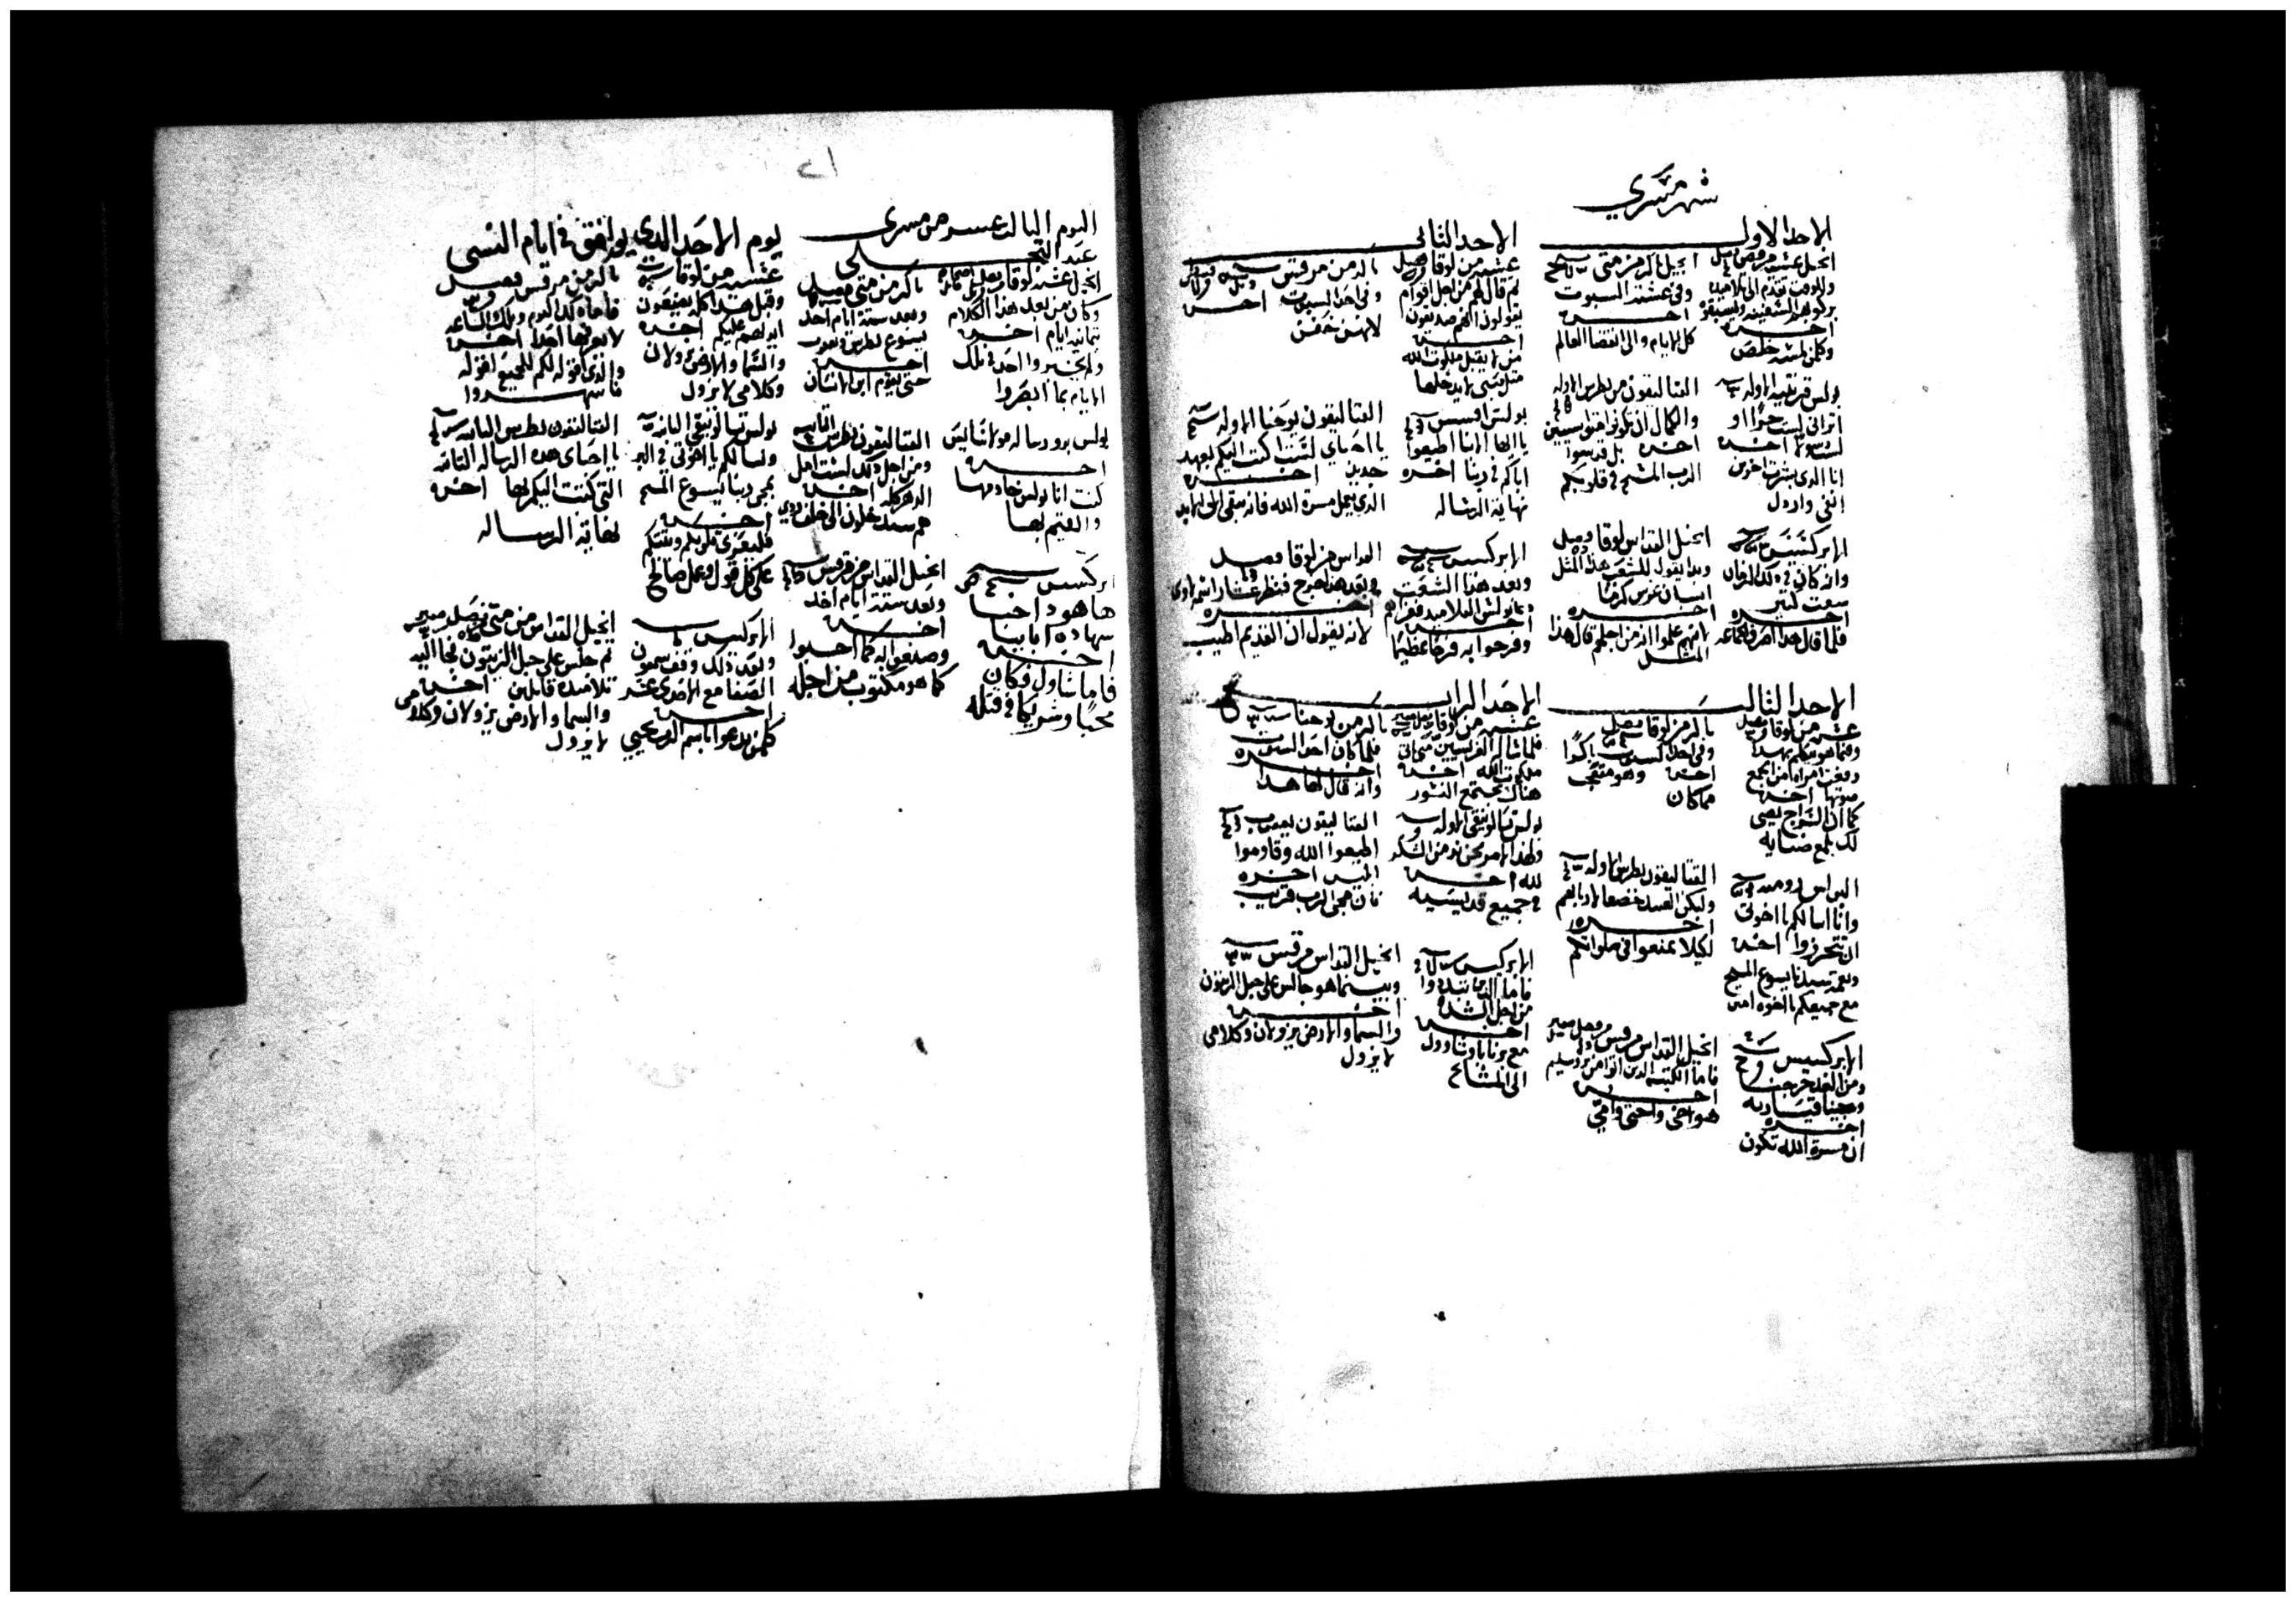 شهر مسري
الاحد الاول
انجيل عشيه مرقص فصل
وللوقت تقدم الى تلاميذه
بركوب السفينه وليسبقوه
اخره
وكلمن لمسه خلص
انجيل باكر من متى
وفي عشية السبوت
اخره
كل الايام والى انقضا العالم
بولس قرنتيه الاوله
اتراني لست حرًا او
لست رسولا اخره
انا الذي بشرت اخرين
انفي وارذول
القتاليقون من بطرس الاوله
والكمال ان تكونوا متواسيين
اخره بل قدسوا
الرب المسيح في قلوبكم
الابركسيس
وانه كان في ذلك الزمان
سجس كثير
اخره
فلما قال هذا اصرف الجماعه
انجيل القداس لوقا فصل
وبدا يقول للشعب هذا المثل
انسان غرس كرمًا
اخره
لانهم علموا انه من اجلهم قال هذا
المثل
الاحد الثاني
عشيه من لوقا فصل
ثم قال لهم من اجل اقوام
يقولون انهم صديقون
اخره
من لا يقبل ملكوت الله
مثل صبي لا يدخلها
باكر من مرقس
وفي احد السبوت اخره
لانهن خفن
بولس افسس
يا ايها الابنا اطيعوا
اباكم في ربنا اخره
نهاية الرساله
القتاليقون يوحنا الاوله
يا احباي لست اكتب اليكم بعهد
جديد اخره
الذي يعمل مسرة الله فانه يبقى الى الابد
الابركسيس
وبعد هذا الشغب
دعا بولس التلاميذ فعزاهم
اخره
وفرحوا به فرحًا عظيمًا
القداس من لوقا فصل
وبعد هذا خرج فنظر عشارا اسمه لاوي
اخره
لانه يقول ان القديم اطيب
الاحد الثالث
عشيه من لوقا فصل
وفيما هو يتكلم بهذا
رفعت امراه من الجمع
صوتها اخره
كما ان السراج يضي
لك بلمع ضيايه
باكر من لوقا فصل
وفي احد السبوت باكرًا
اخره وهو متعجب
مما كان
البولس روميه
وانا اسالكم يا اخوتي
ان تتحرزوا اخره
ونعمة سيدنا يسوع المسيح
مع جميعكم يا اخوه امين
القتاليقون بطرس الاوله
وليكن العبيد خضعا لاربابهم
اخره
لكيلا يمنعوا في صلواتكم
الابركسيس
ومن الغد خرجنا
وجينا قيساريه
اخره
ان مسرة الله تكون
انجيل القداس مرقس فصل
فاما الكتبه الذين اتوا من يروشليم
اخره
هو اخي واختي وامي
الاحد الرابع
عشيه من لوقا
فلما سال الفريسيين متى تاتي
ملكوت الله اخره
هناك تجتمع النسور
باكر من يوحنا
فلما كان احد السبوت
اخره
وانه قال لها هذا
بولس تسالونيقي الاوله
ولهذا الامر نحن نديم الشكر
لله اخره
في جميع قديسيه
القتاليقون يعقوب
اطيعوا الله وقاوموا
ابليس اخره
فان مجي الرب قريب
الابركسيس
فاما الذين تبددوا
من اجل الشده
اخره
مع برنابا وشاوول
الى المشايخ
انجيل القداس مرقس
وبينما هو جالس على جبل الزيتون
اخره
والسما والارض يزولان وكلامي
لا يزول
١٢
اليوم الثالث عشر من مسرى
عيد التجلي
انجيل عشيه لوقا فصل
وكان من بعد هذا الكلام
بثمانية ايام اخره
ولم يخبروا احد في تلك
الايام بما ابصروا
باكر من متى فصل
وبعد ستة ايام اخذ
يسوع بطرس ويعقوب
اخره
حتى يقوم ابن الانسان
بولس برو رساله قولاسايس
اخره
كنت انا بولس خادمها
والقيم بها
القتاليقون بطرس الثانيه
ومن اجل ذلك لست اهمل
اذكركم اخره
هم سيدخلون الى خلف
ابركسيس
ها هوذا احيا
شهادة ابايينا
اخره
فاما شاول فكان
محبًا وشريكا في قتله
انجيل القداس مرقس
وبعد ستة ايام اخذ
اخره
وصنعوا به كما احبوا
كما هو مكتوب من اجله
يوم الاحد الذي يوافق في ايام النسي
عشيه من لوقا
وقبل هذا كله يضعون
ايديهم عليكم اخره
والسما والارض يزولان
وكلامي لا يزول
باكر من مرقس فصل
فاما ذلك اليوم وتلك الساعه
لا يعرفها احد اخره
والذي اقوله لكم للجميع اقوله
فاسهروا
بولس تسالونيقي الثانيه
ونسالكم يا اخوتي في البر
بمجي ربنا يسوع المسيح
اخره
فليعزي قلوبكم ويثبتكم
على كل قول وعمل صالح
القتاليقون بطرس الثانيه
يا احباي هذه الرساله الثانيه
التي كتبت اليكم بها اخره
نهاية الرساله
الابركسيس
وبعد ذلك وقف سمعون
الصفا مع الاحدى عشر
اخره
كلمن يدعوا باسم الرب يحيى
انجيل القداس من متى فصل
ثم جلس على جبل الزيتون فجا اليه
تلاميذه قايلين اخره
والسما والارض يزولان وكلامي
لا يزول